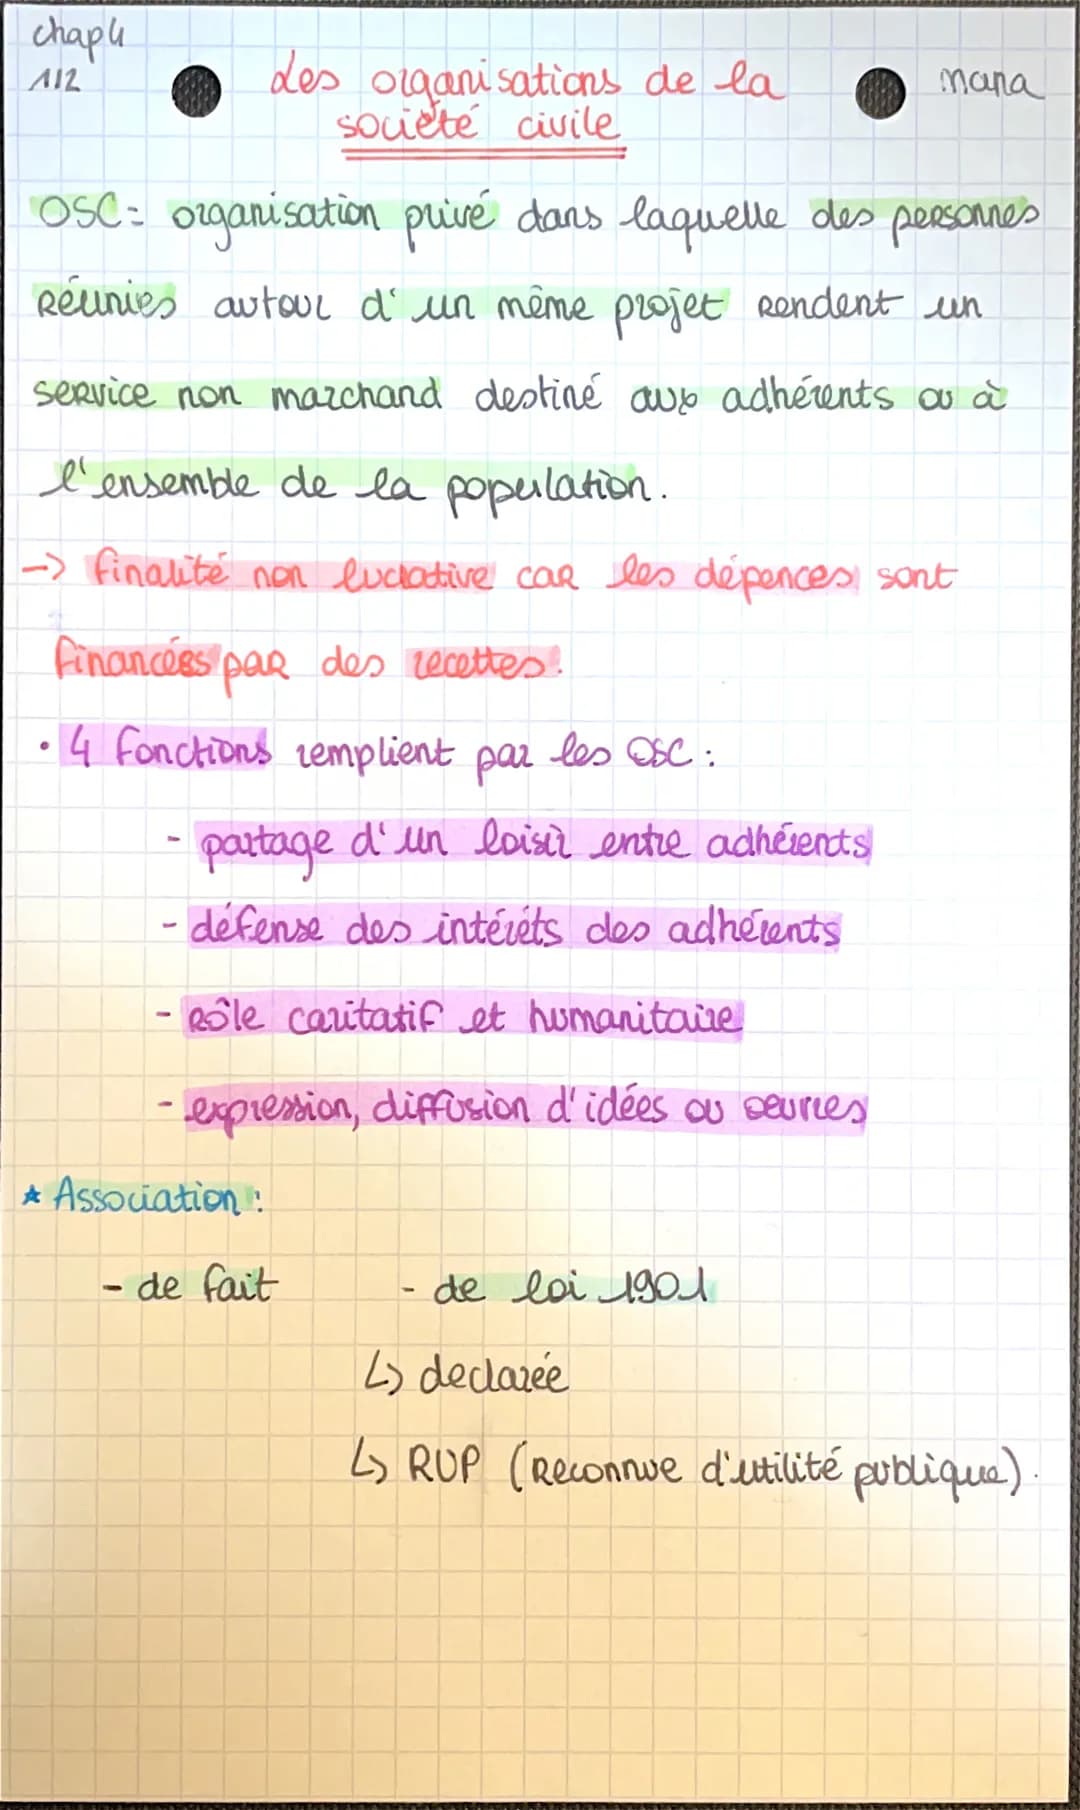 chap4
1/2
mana
Les organisations de la
société civile
OSC = organisation privé dans laquelle des personnes
réunies autour d'un même projet rendent un
service non marchand destiné aux adhérents ou à
l'ensemble de la population.
-> finalité non lucrative car les dépences sont
financées par des recettes.
• 4 fonctions remplient par les OSC :
- partage d'un loisir entre adhérents
- défense des intérêts des adhérents
- rôle caritatif et humanitaire
- expression, diffusion d'idées ou oeuvres
★ Association :
- de fait - de loi 1901
↳ declarée
↳ RUP (Reconnue d'utilité publique).